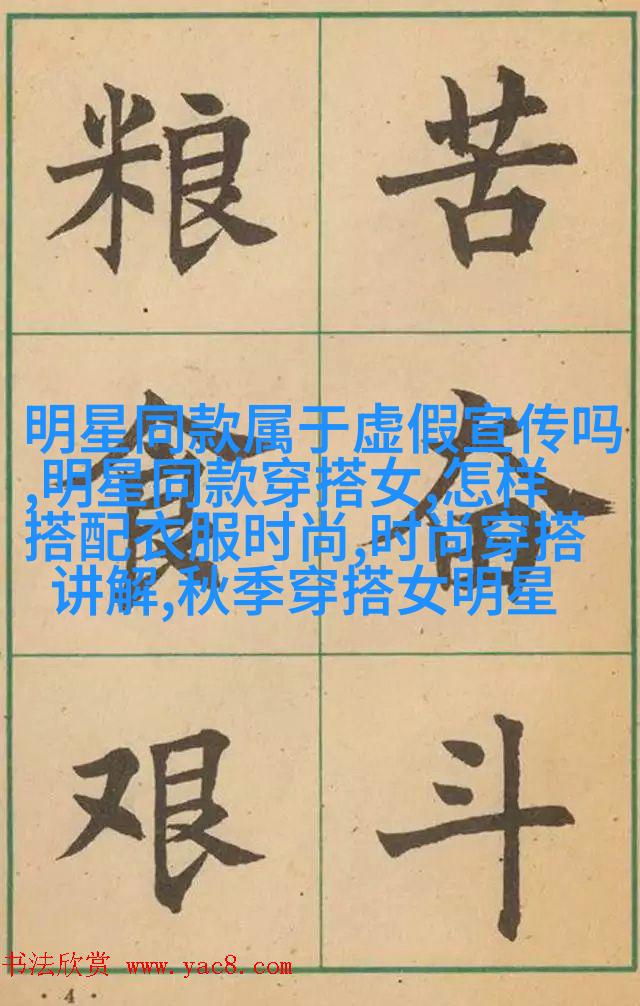 粮 苦
食 奋
艰 斗
明星同款属于虚假宣传吗
,明星同款穿搭女,怎样
搭配衣服时尚,时尚穿搭
讲解,秋季穿搭女明星
书法欣赏 www.yac8.com
·4·